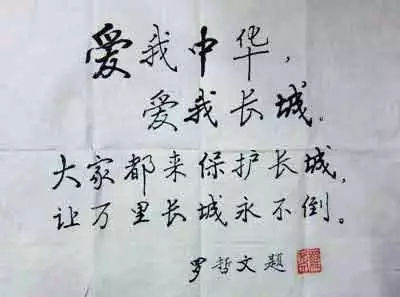 爱我中华,
爱我长城。
大家都来保护长城,
让万里长城永不倒。
罗哲文题